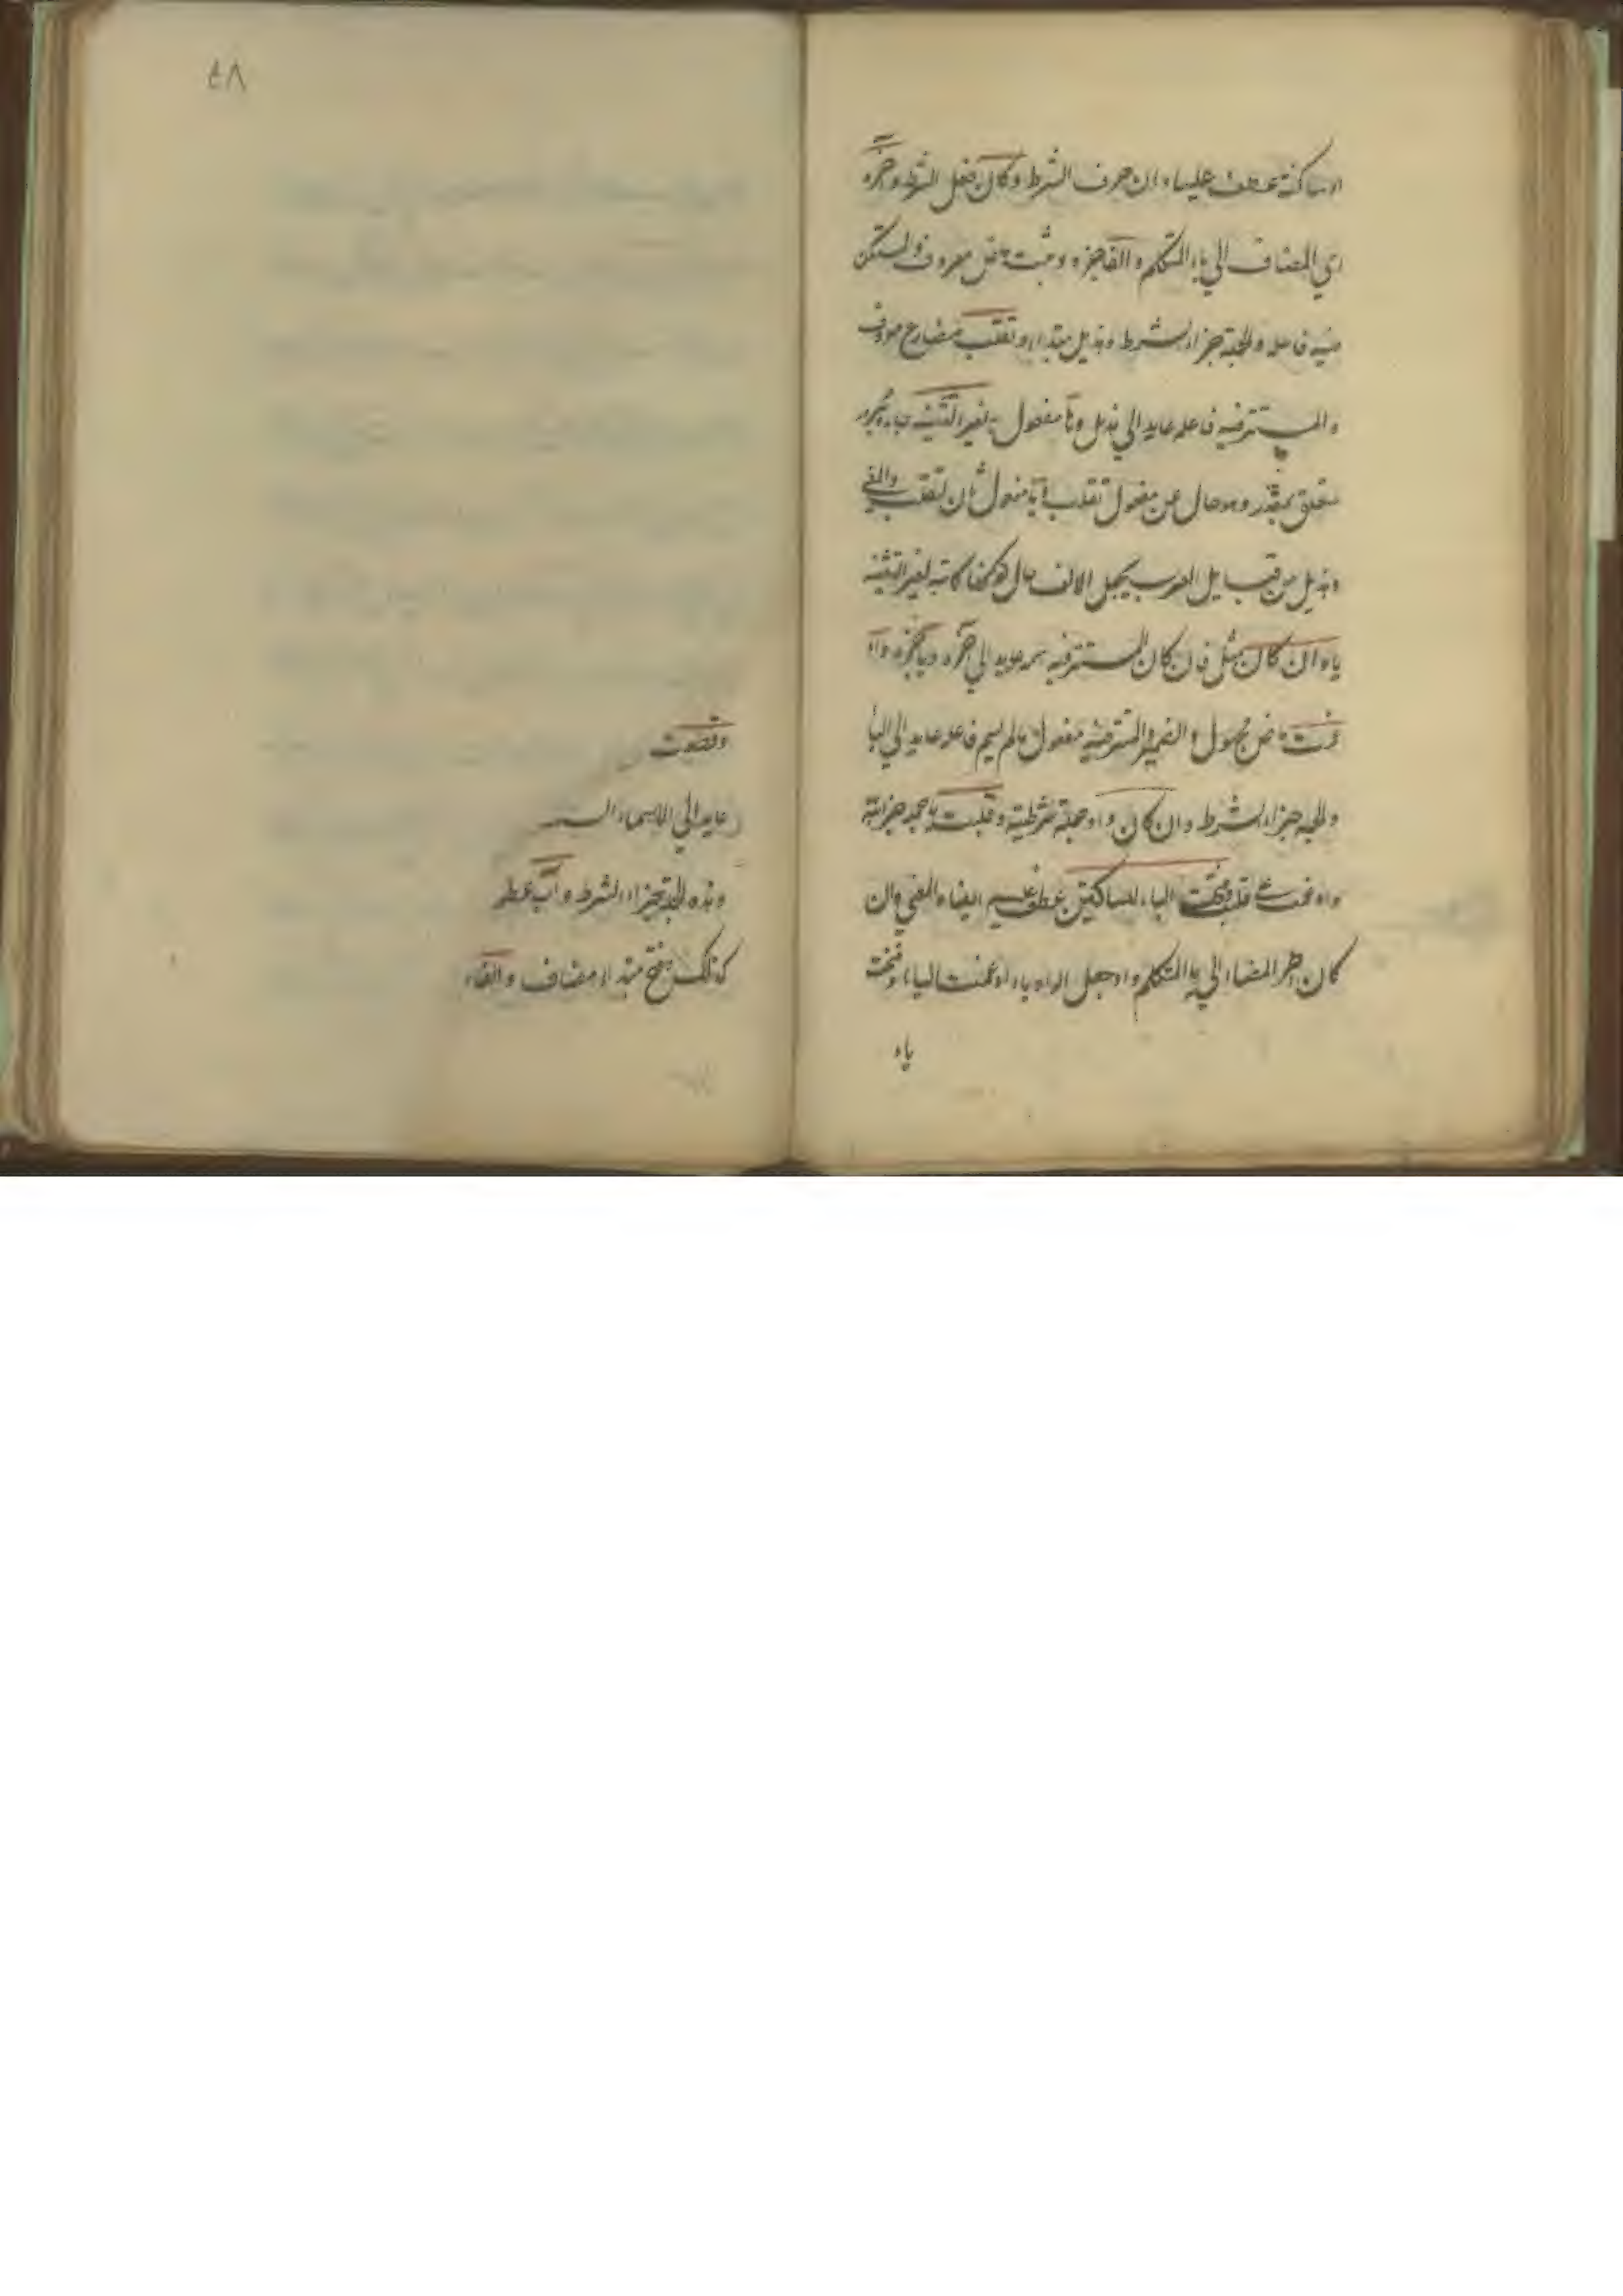 او ساكنة عطف عليها وان حرف الشرط وكان فعل الشرط وآخره
اي المضاف الي ياء المتكلم والفا خبره وثبتت ماض معروف والمستكن
فيه فاعله والجملة جزاء الشرط وهذيل مبتداء وتقلب مضارع معروف
والمستتر فيه فاعله عايد الي هذيل وها مفعول به لغير التثنية جار ومجرور
متعلق بمقدر وهو حال عن مفعول تقلب ياء مفعول ثان لتقلب والمعني
وهذيل من قبايل العرب يجعل الالف حال كونها كائنة لغير التثنية
ياء وان كان مثل فان كان المستتر فيه اسمه عايد الي آخره وياء خبره و
ادغمت ماض مجهول والضمير المستتر فيه مفعول مالم يسم فاعله عايد الي اليا
والجملة جزاء الشرط وان كان واوا جملة شرطية وقلبت ياء جملة جزائية
وادغمت قلبت وفتحت الياء للساكنين عطف عليه ايضا والمعني وان
كان آخر المضاف الي ياء المتكلم واوا جعل الواو ياء وادغمت الياء وفتحت
ياء
٤٨
وقطعت
عايد الي الاسماء
وهذه الجملة جزاء الشرط واب عطف
كذلك وفتح مبتداء مضاف والفاء